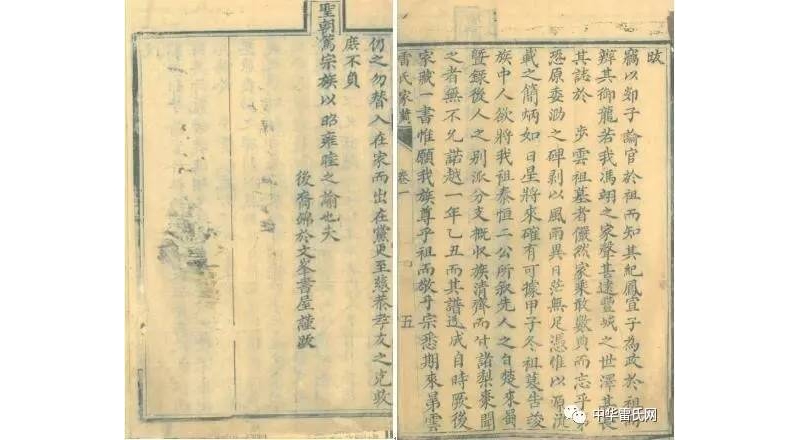 跋
竊以郯子論官於祖而知其紀鳳宣子為政於祖而
辨其御龍若我馮翊之家聲甚遠豐城之世澤甚長
其誌於 步雲祖墓者儼然家乘敢數典而忘乎
恐原委泐之碑剥以風雨異日茫無足憑惟以源流
載之簡炳如日星將來確有可據甲子冬祖墓告竣
族中人欲將我祖泰恒二公所叙先人之自楚來黃
暨錄後人之別派分支概收族清齊而付諸梨棗聞
之者無不允諾越一年乙丑而其譜遂成自時厥後
家藏一書惟願我族尊乎祖而敬乎宗悉期來弟雲
雷氏家 卷一 五
仍之勿替入在家而出在黨更至慈恭孝友之克敦
庶不負
聖朝篤宗族以昭雍睦之諭也夫
後裔 於文峯書屋謹跋
中华雷氏网